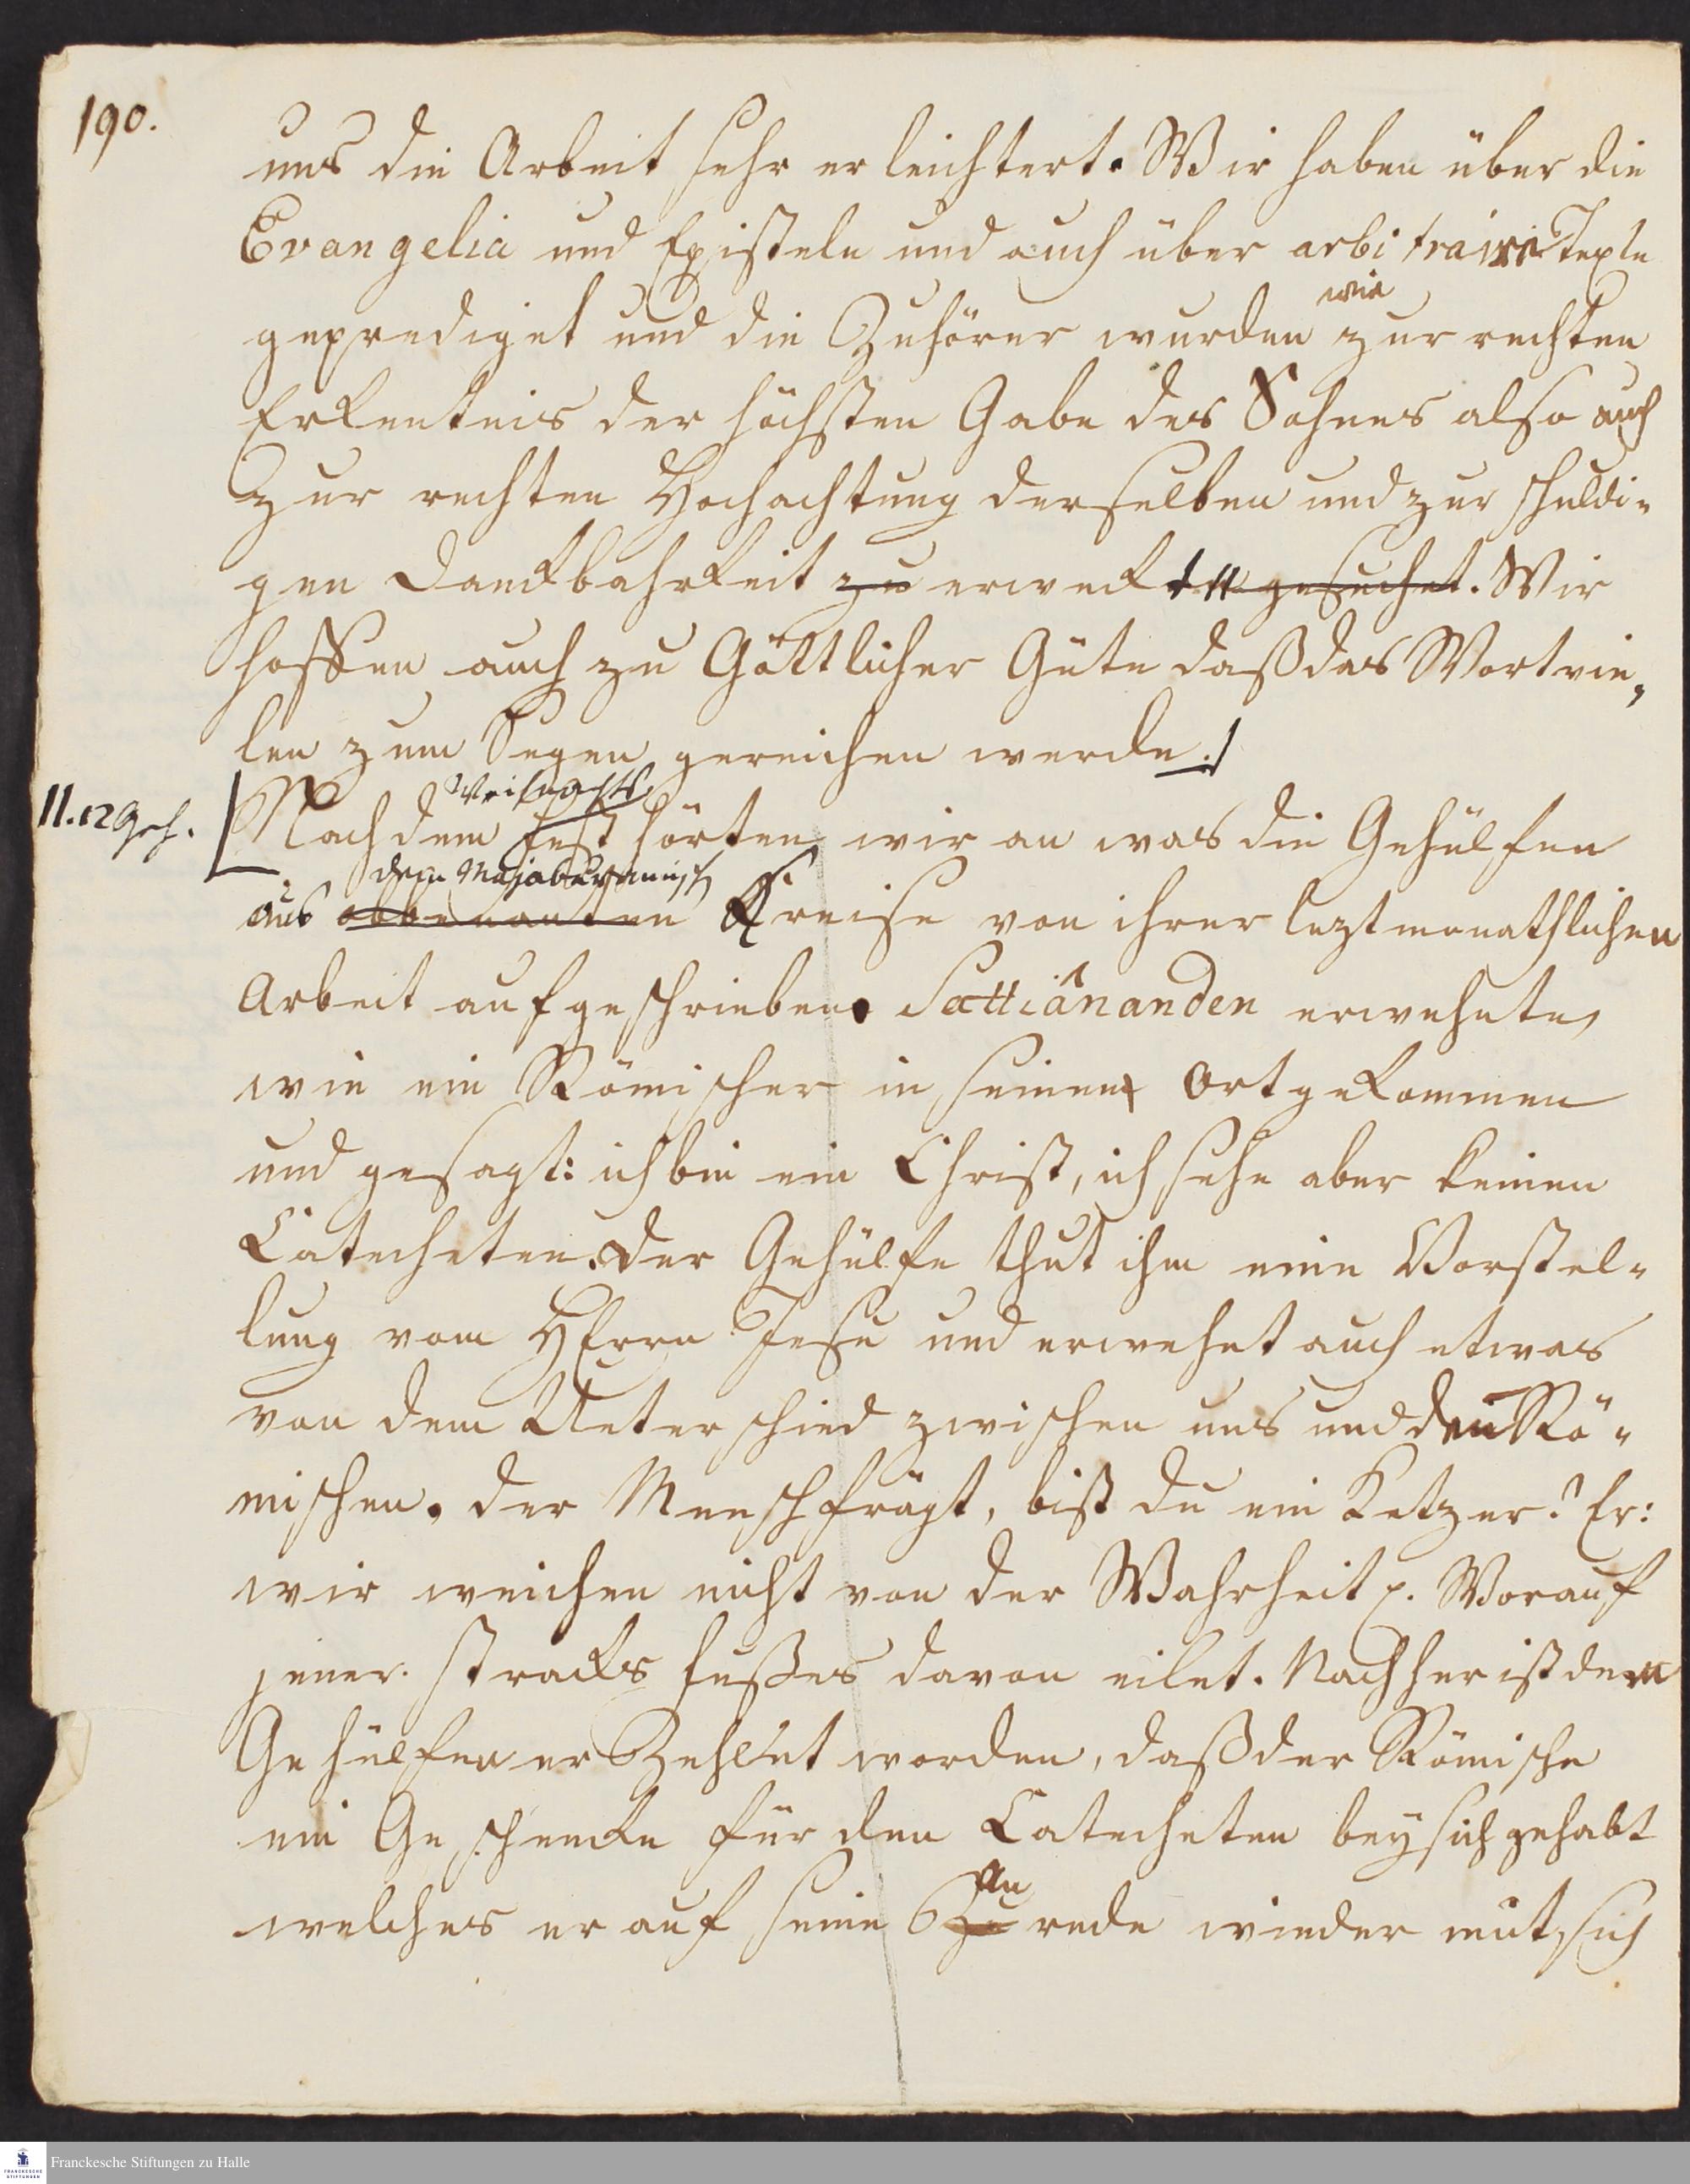 190.
uns die Arbeit sehr erleichtert. Wir haben über die
Evangelia und Episteln und auch über arbitraire Texte
wie
geprediget und die Zuhörer wurden zur rechten
Erkentnis der höchsten Gabe des Sohnes also auch
zur rechten Hochachtung derselben und zur schuldi-
gen Danckbahrkeit zu erweckt gesuchet. Wir
hoffen auch zu Göttlicher Güte daß das Wort vie-
len zum Segen gereichen werde.
Weihnachts
11.12 Geh. Nach dem Fest hörten wir an was die Gehülfen
dem Majaburamisch
aus obbenanten Kreise von ihrer leztmonathlichen
Arbeit aufgeschrieben. Sattiânanden erwehnte,
wie ein Römischer in seinen Ort gekommen
und gesagt: ich bin ein Christ, ich sehe aber keinen
Catecheten. Der Gehülfe thut ihm eine Vorstel-
lung vom HErrn Jesu und erwehnt auch etwas
von dem Unterschied zwischen uns und den Rö-
mischen. Der Mensch frägt, bist du ein Ketzer? Er:
wir weichen nicht von der Wahrheit p. Worauf
jener stracks fußes davon eilet. Nachher ist dem
Gehülfen erzehlet worden, daß der Römische
ein Geschencke für den Catecheten bey sich gehabt
An
welches er auf seine Zurede wieder mit sich
Franckesche Stiftungen zu Halle